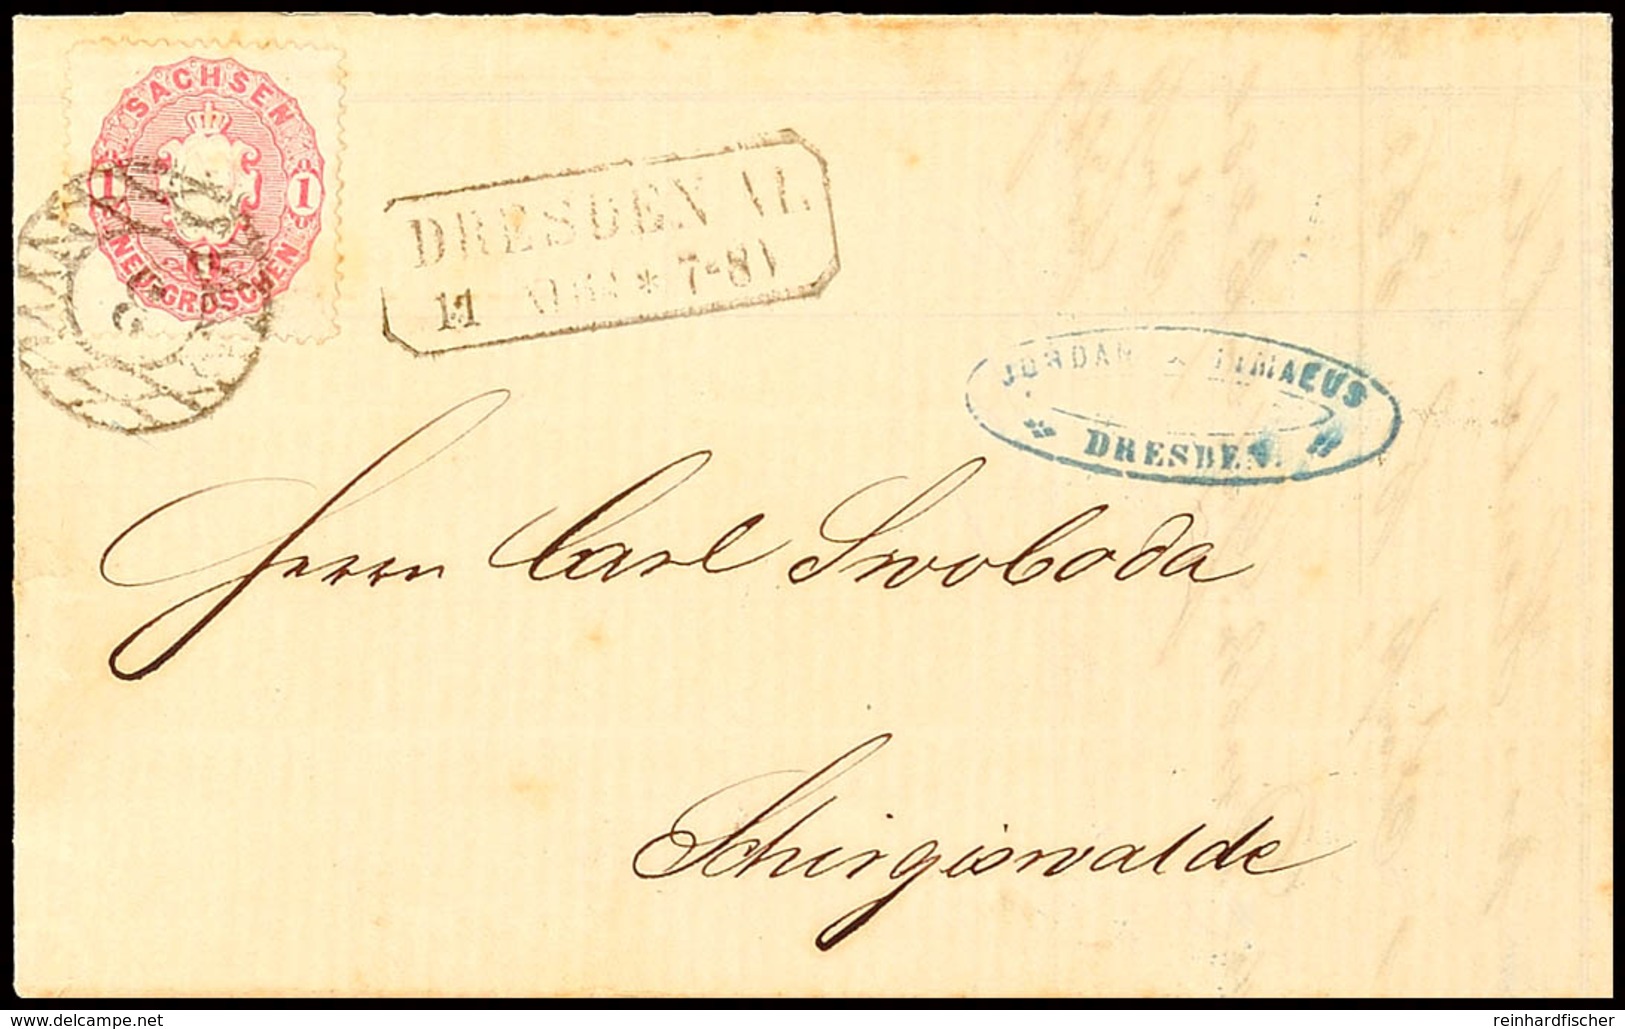 SACHSEN
1 1
NEU-GROSCHEN
DRESDEN VI.
11 * 7-8
JORDAN & TIMAEUS
DRESDEN.
Herrn Carl Swoboda
Schirgiswalde
www.delcampe.net
reinhardfischer